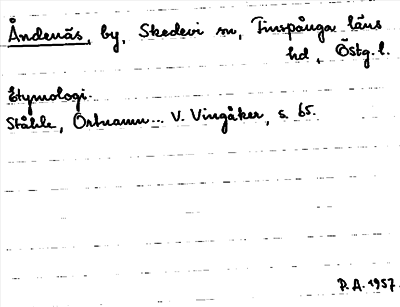 Åndenäs, by, Skedevi sn, Finspånga läns
hd, Östg. l.
Etymologi.
Ståhle, Ortnamn... V. Vingåker, s. 65.
P. A. 1957.